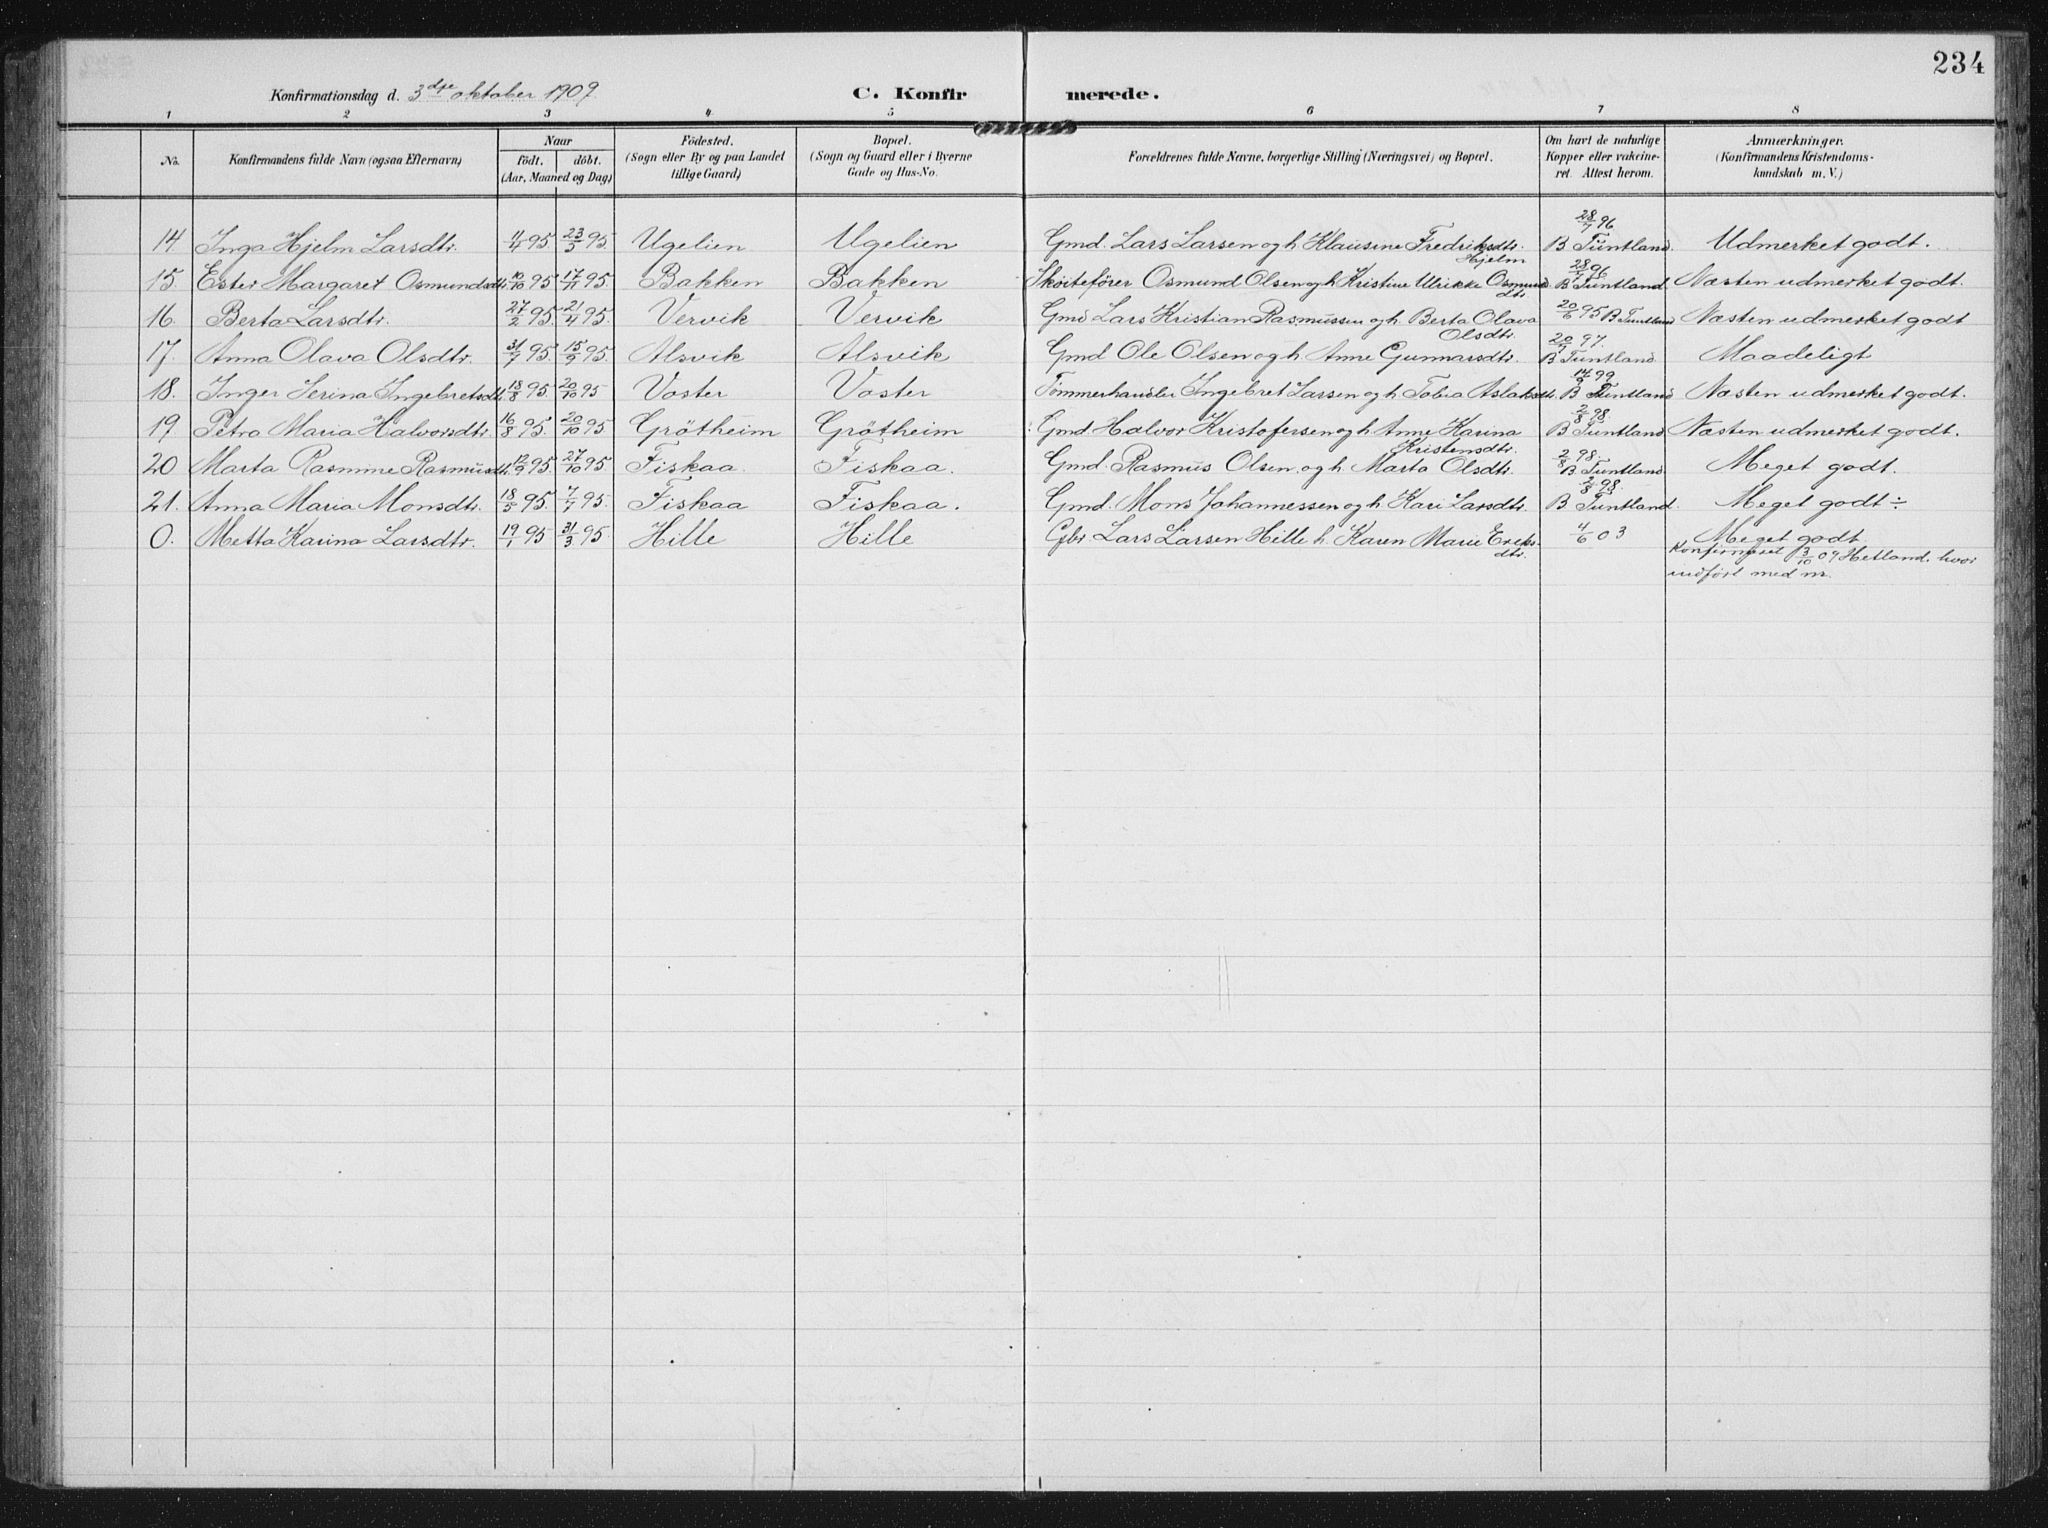 234
Konfirmationsdag d. 3dje oktober 1909. C. Konfirmerede.
1 2 3 4 5 6 7 8
No. Konfirmandens fulde Navn (ogsaa Efternavn) Naar født. døbt. (Aar, Maaned og Dag) Fødested. (Sogn eller By og paa Landet tillige Gaard) Bopæl. (Sogn og Gaard eller i Byerne Gade og Hus-No. Forældrenes fulde Navne, borgerlige Stilling (Næringsvei) og Bopæl. Om havt de naturlige Kopper eller vakcineret. Attest herom. Anmærkninger. (Konfirmandens Kristendomskundskab m. V.)
14. Inga Hjelm Larsdtr. 11/4 95 23/5 95. Ugelien Ugelien Gmd. Lars Larsen og h. Klausine Fredriksdtr. Hjelm 28/7 96 B Tuntland Udmerket godt.
15. Ester Margaret Osmundsdtr. 10/10 95 17/11 95. Bakken Bakken Skøitefører Osmund Olsen og h Kristine Ulrikke Osmundsdtr 28/7 96 B Tuntland. Næsten udmerket godt.
16. Berta Larsdtr. 27/2 95. 21/4 95. Vervik Vervik Gmd Lars Kristian Rasmussen og h. Berta Olava Olsdtr. 20/6 95 B Tuntland Næsten udmerket godt
17. Anna Olava Olsdtr. 31/7 95. 15/9 95. Alsvik Alsvik Gmd Ole Olsen og h Anne Gunnarsdtr. 20/7 97. B Tuntland Maadeligt
18. Inger Serina Ingebretsdtr. 18/8 95. 20/10 95 Voster Voster Tømmerhandler Ingebret Larsen og h Tobia Aslaksdtr. 14/9 99 B Tuntland Næsten udmerket godt.
19 Petra Maria Halvorsdtr. 16/8 95. 20/10 95 Grøtheim Grøtheim Gmd. Halvor Kristofersen og h Anne Karina Kristensdtr. 2/8 98. B Tuntland Næsten udmerket godt.
20 Marta Rasmine Rasmusdtr. 12/9 95. 27/10 95 Fiskaa. Fiskaa. Gmd. Rasmus Olsen. og h Marta Olsdtr. 2/8 98. B Tuntland. Meget godt.
21. Anna Maria Monsdtr. 18/5 95. 7/7 95. Fiskaa Fiskaa. Gmd. Mons Johannessen og h Kari Larsdtr. 2/8 98. B Tuntland. Meget godt ÷
0. Metta Karina Larsdtr. 19/1 95 31/3 95. Hille Hille Gbr Lars Larsen Hille h. Karen Marie Ereksdtr. 4/6 03 Meget godt
Konfirmeret 3/10 09 Hetland. hvor
indført med nr.